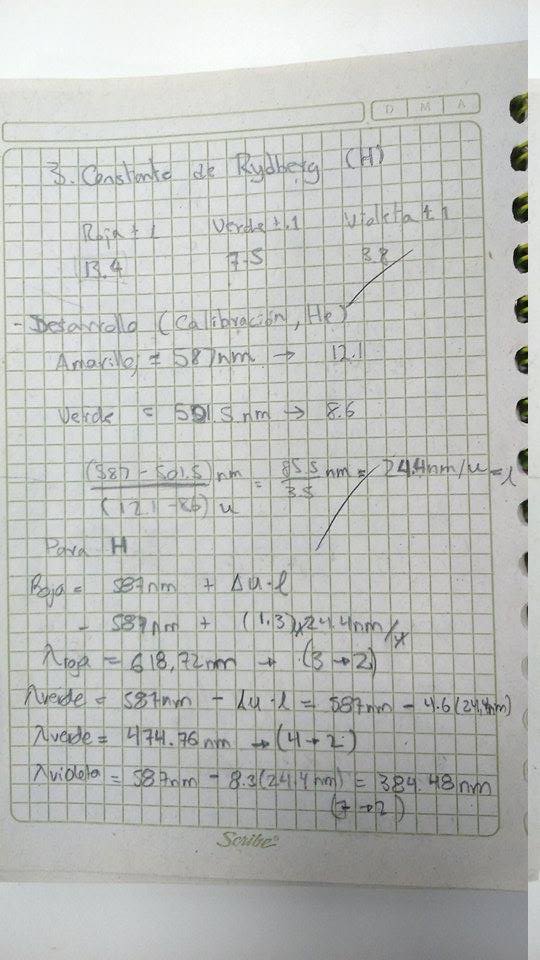 D M A
3. Constante de Rydberg (H)
Roja ± 1 Verde ± .1 Violeta ± 1
13.4 7.5 3.8
- Desarrollo (Calibración, He)
Amarillo = 587nm → 12.1
Verde = 501.5 nm → 8.6
(587 - 501.5) nm / (12.1 - 8.6) u = 85.5 / 3.5 nm = 24.4 nm/u = l
Para H
Roja = 587nm + Δu·l
= 587nm + (1.3) x 24.4nm/x
λroja = 618,72nm → (3→2)
λverde = 587nm - Δu·l = 587nm - 4.6(24,4nm)
λverde = 474.76nm → (4→2)
λvioleta = 587nm - 8.3(24.4nm) = 384.48nm
(7→2)
Scribe